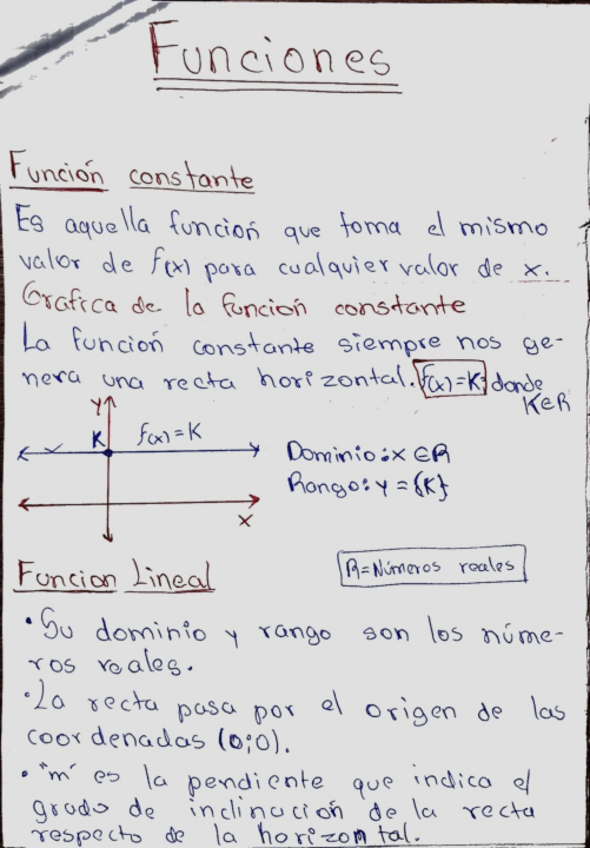 Funciones
Función constante
Es aquella función que toma el mismo
valor de f(x) para cualquier valor de x.
Grafica de la función constante
La función constante siempre nos ge-
nera una recta horizontal. f(x)=K; donde
K∈R
Y
K f(x)=K
Dominio: x ∈ R
Rango: y = {K}
X
Funcion Lineal
R=Números reales
• Su dominio y rango son los núme-
ros reales.
• La recta pasa por el origen de las
coordenadas (0;0).
• "m" es la pendiente que indica el
grado de inclinación de la recta
respecto de la horizontal.